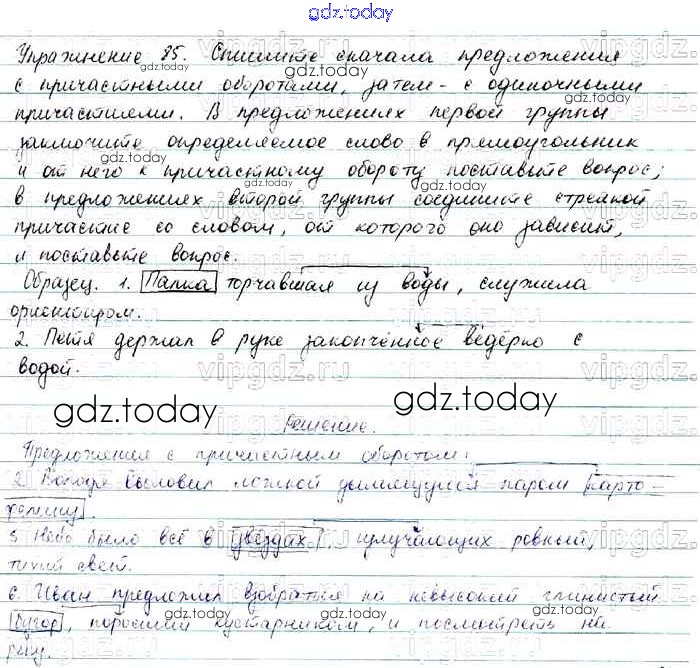 gdz.today
Упражнение 85. Спишите сначала предложения
с причастными оборотами, затем - с одиночными
причастиями. В предложениях первой группы
заключите определяемое слово в прямоугольник
и от него к причастному обороту поставьте вопрос;
в предложениях второй группы соедините стрелкой
причастие со словом, от которого оно зависит,
и поставьте вопрос.
Образец. 1. Палка торчавшая из воды, служила
ориентиром.
2. Петя держал в руке закопчённое ведёрко с
водой.
gdz.today
gdz.today
Решение.
Предложения с причастным оборотом:
2) Володя выловил ложкой дымящуюся паром карто-
фелину.
5 Небо было всё в звёздах, излучающих ровный,
тихий свет.
6. Иван предложил взобраться на невысокий глинистый
бугор, поросший кустарником, и посмотреть на
реку.